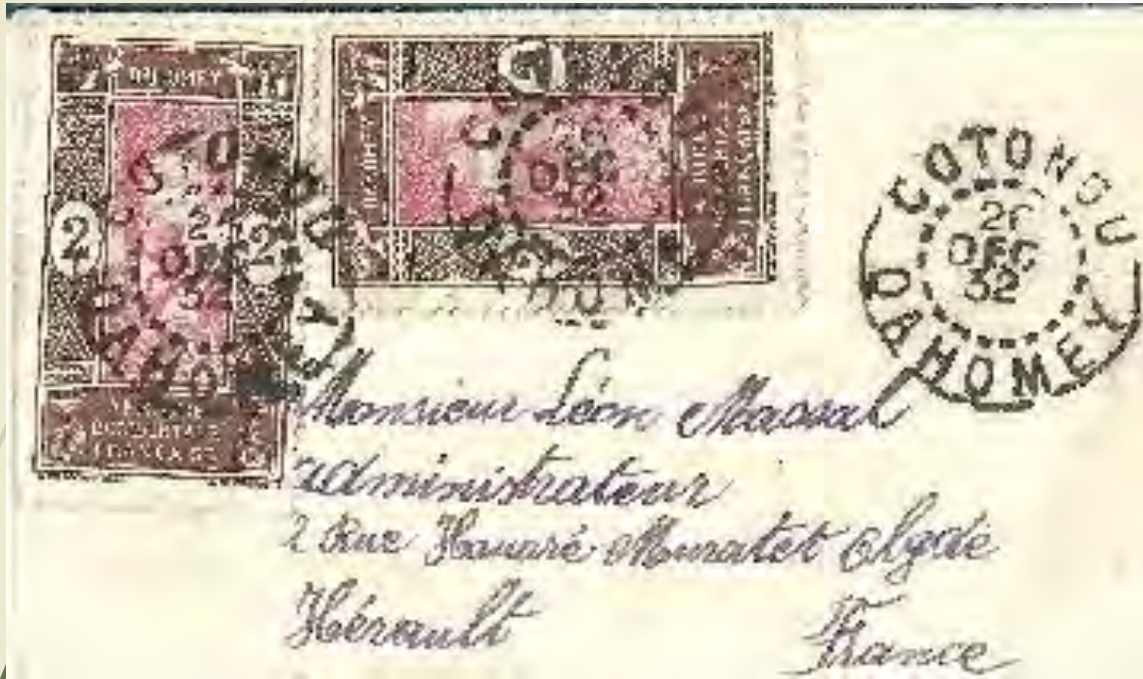 DAHOMEY
2 2
AFRIQUE
OCCIDENTALE
FRANÇAISE
DAHOMEY
COTONOU
26
DEC
32
DAHOMEY
Monsieur Léon Massal
administrateur
2 Rue Muratet Agde
Hérault France